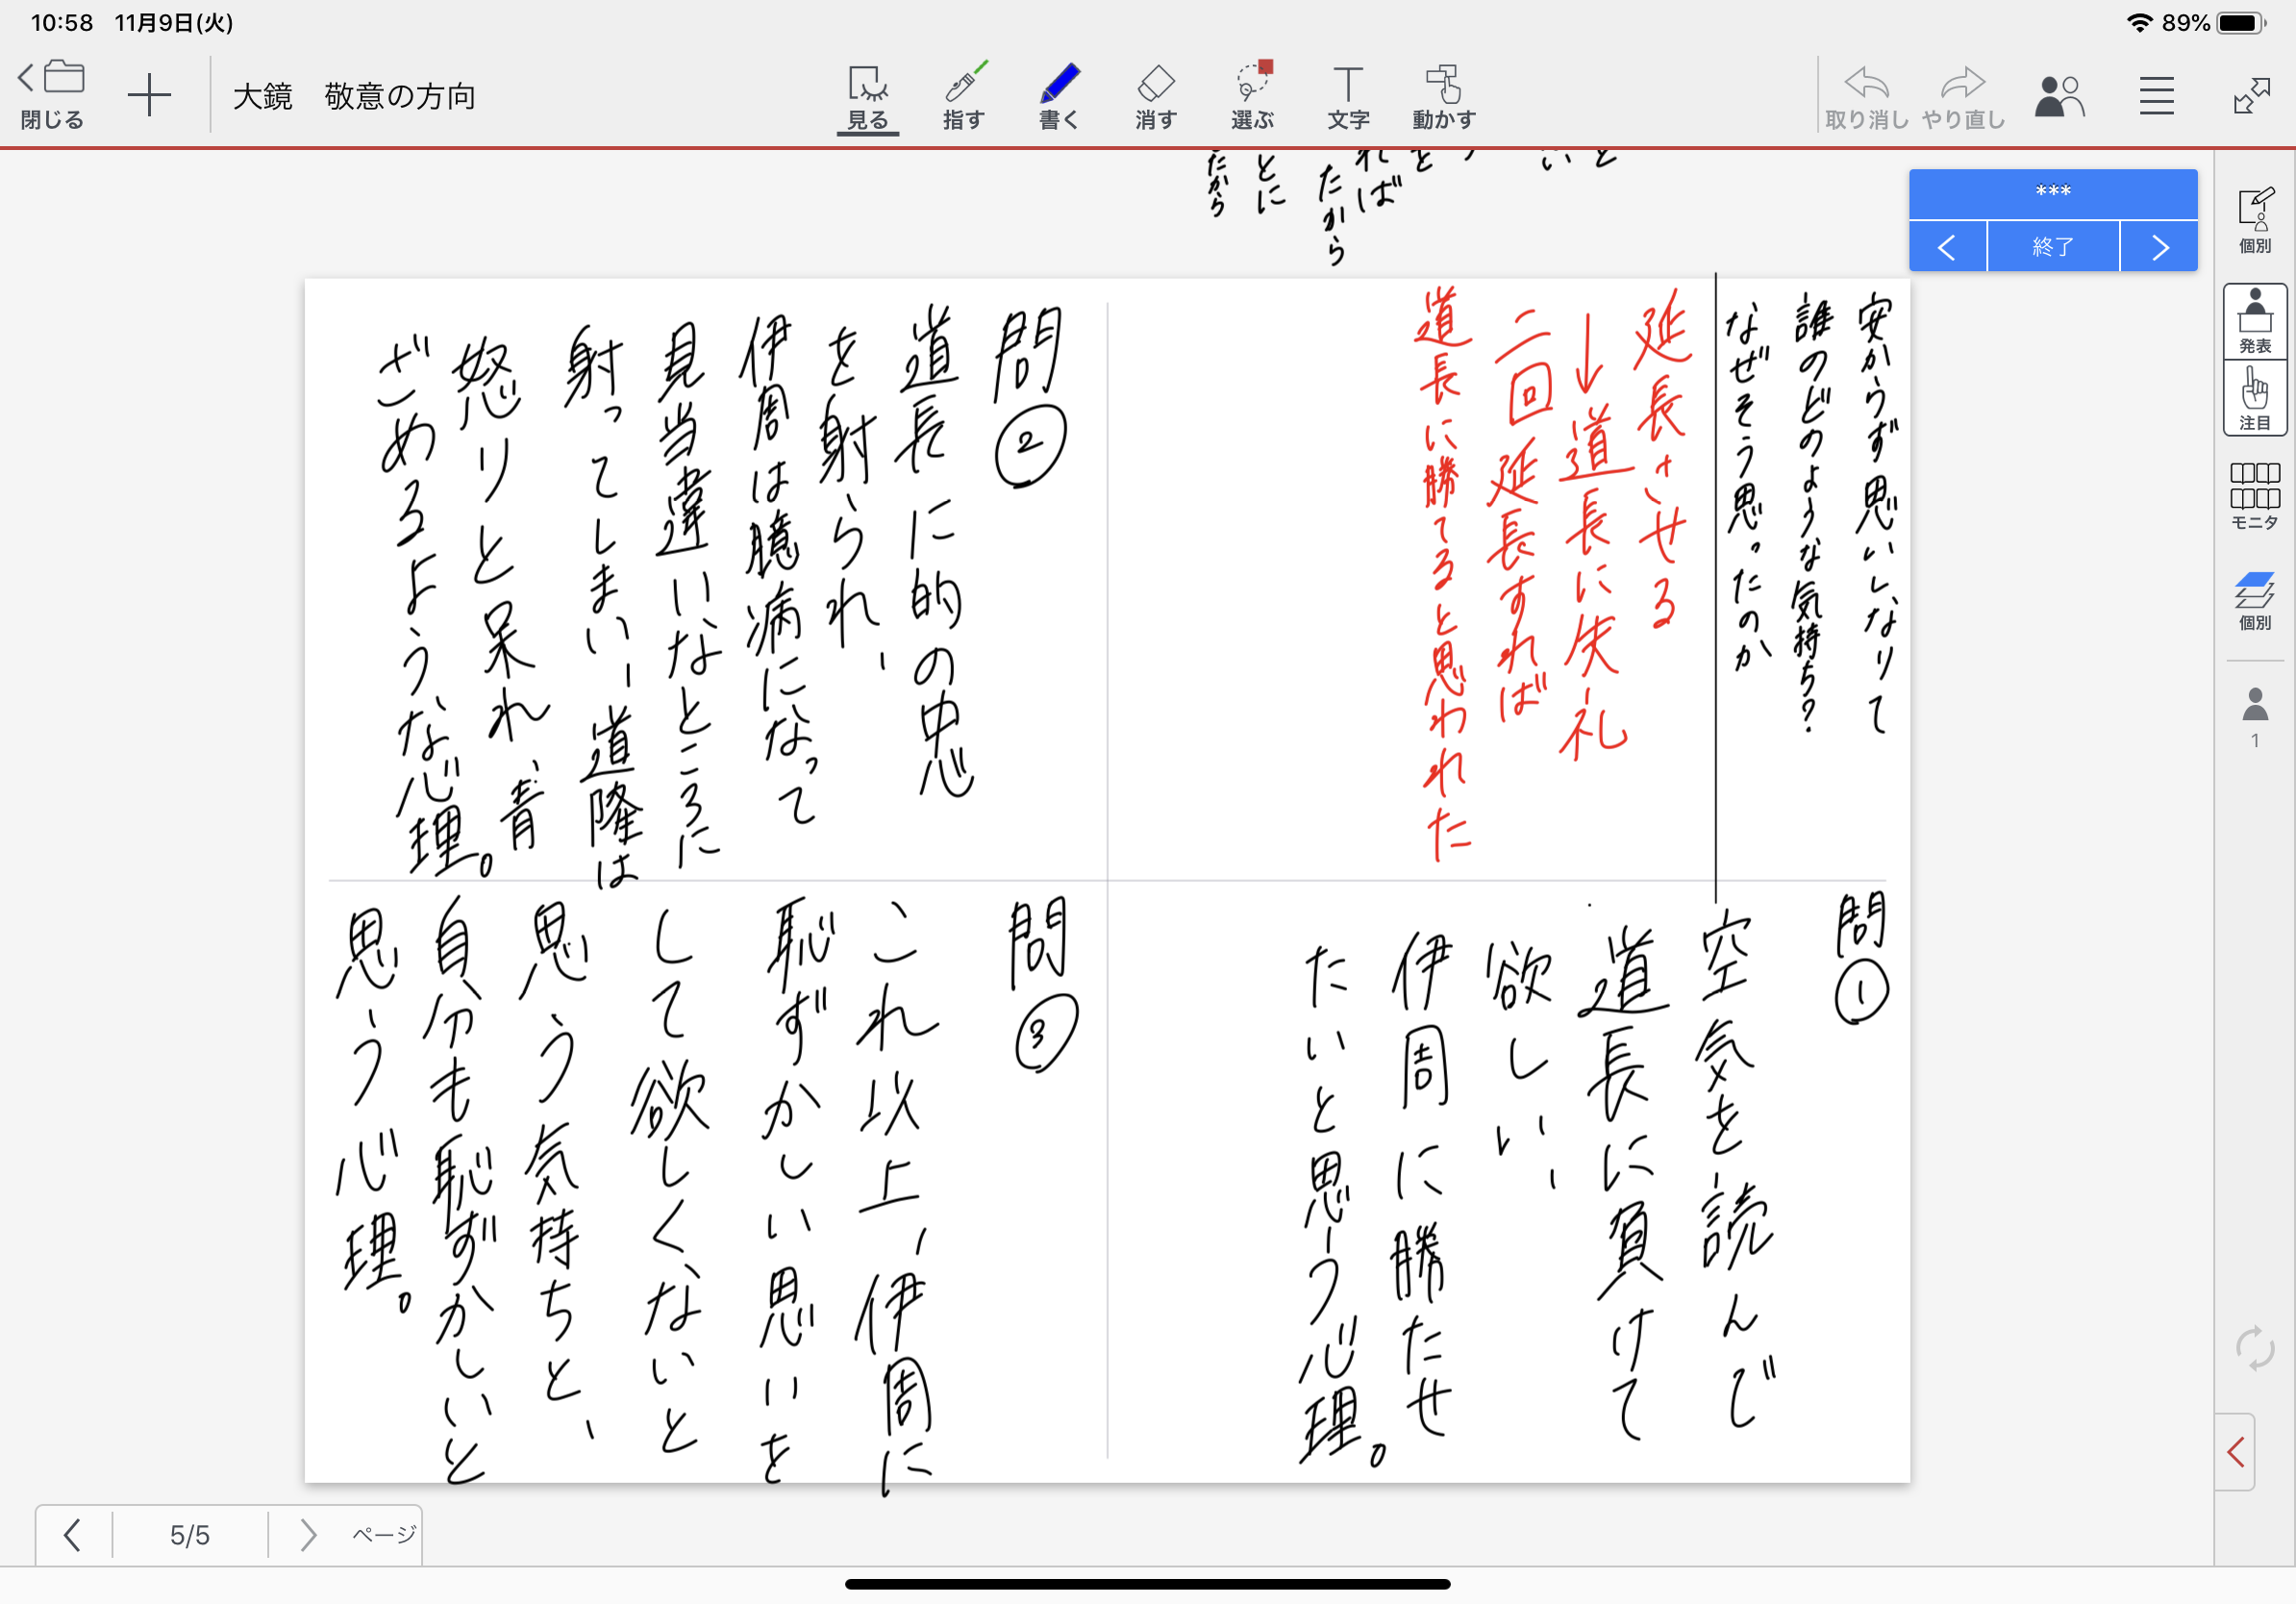 10:58 11月9日(火)
89%
閉じる
大鏡 敬意の方向
見る
指す
書く
消す
選ぶ
文字
動かす
取り消し
やり直し
***
終了
個別
発表
注目
モニタ
個別
1
と
い
を
れば
たから
とに
たから
安からず思いしなりて
誰のどのような気持ち?
なぜそう思ったのか
延長させる
↓道長に失礼
二回延長すれば
道長に勝てると思われた
問①
空気を読んで
道長に負けて
欲しい、
伊周に勝たせ
たいと思う心理。
問②
道長に的の中心
を射られ、
伊周は臆病になって
見当違いなところに
射ってしまい、道隆は
怒りと呆れ、青
ざめるような心理。
問③
これ以上、伊周に
恥ずかしい思いを
して欲しくないと
思う気持ちと、
自分も恥ずかしいと
思う心理。
5/5
ページ